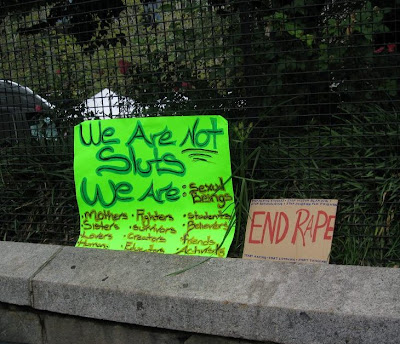 We Are Not
Sluts
We Are: Sexual
Beings
• Mothers • Fighters • students
• Sisters • survivors • Believers
• Lovers • Creators • friends
• Human • Educators • Activists
END RAPE